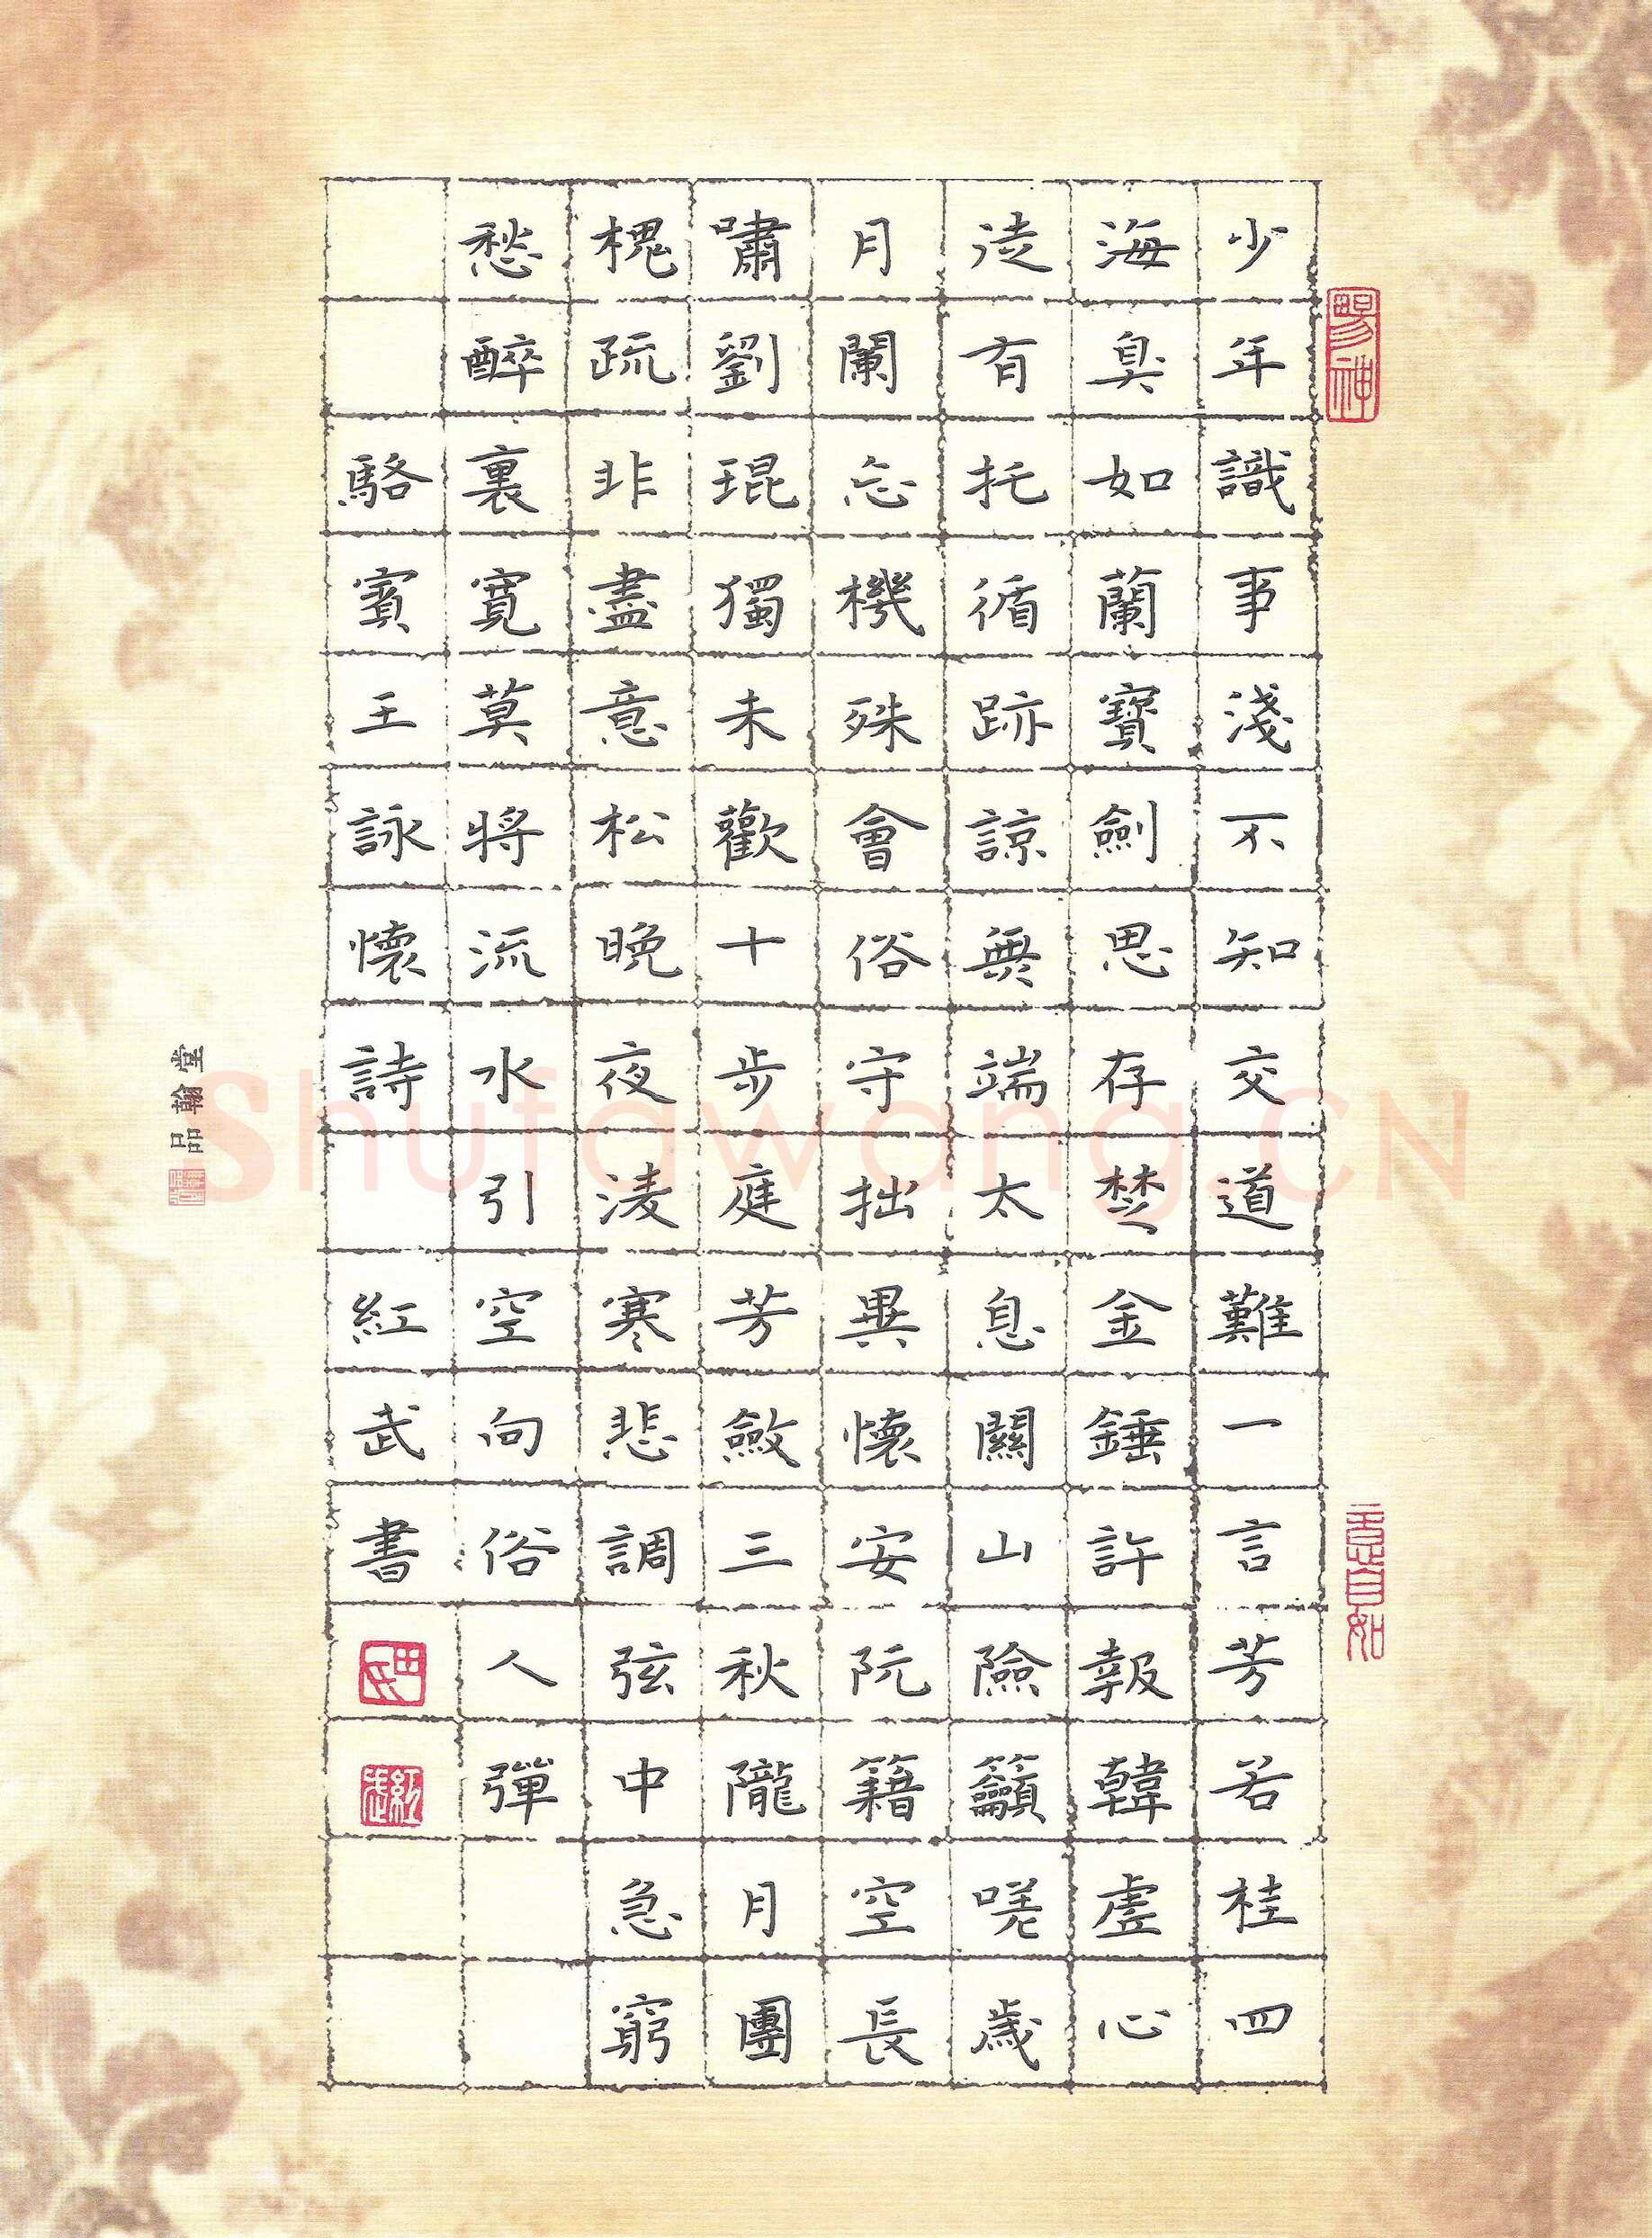 少年識事淺不知交道難一言芳若桂四
海臭如蘭寶劍思存楚金錘許報韓虛心
徒有托循跡諒無端太息關山險籲嗟歲
月闌忘機殊會俗守拙異懷安阮籍空長
嘯劉琨獨未歡十步庭芳斂三秋隴月團
槐疏非盡意松晚夜淩寒悲調弦中急窮
愁醉裏寬莫將流水引空向俗人彈
駱賓王詠懷詩 紅武書
堂翰品
Shufawang.CN